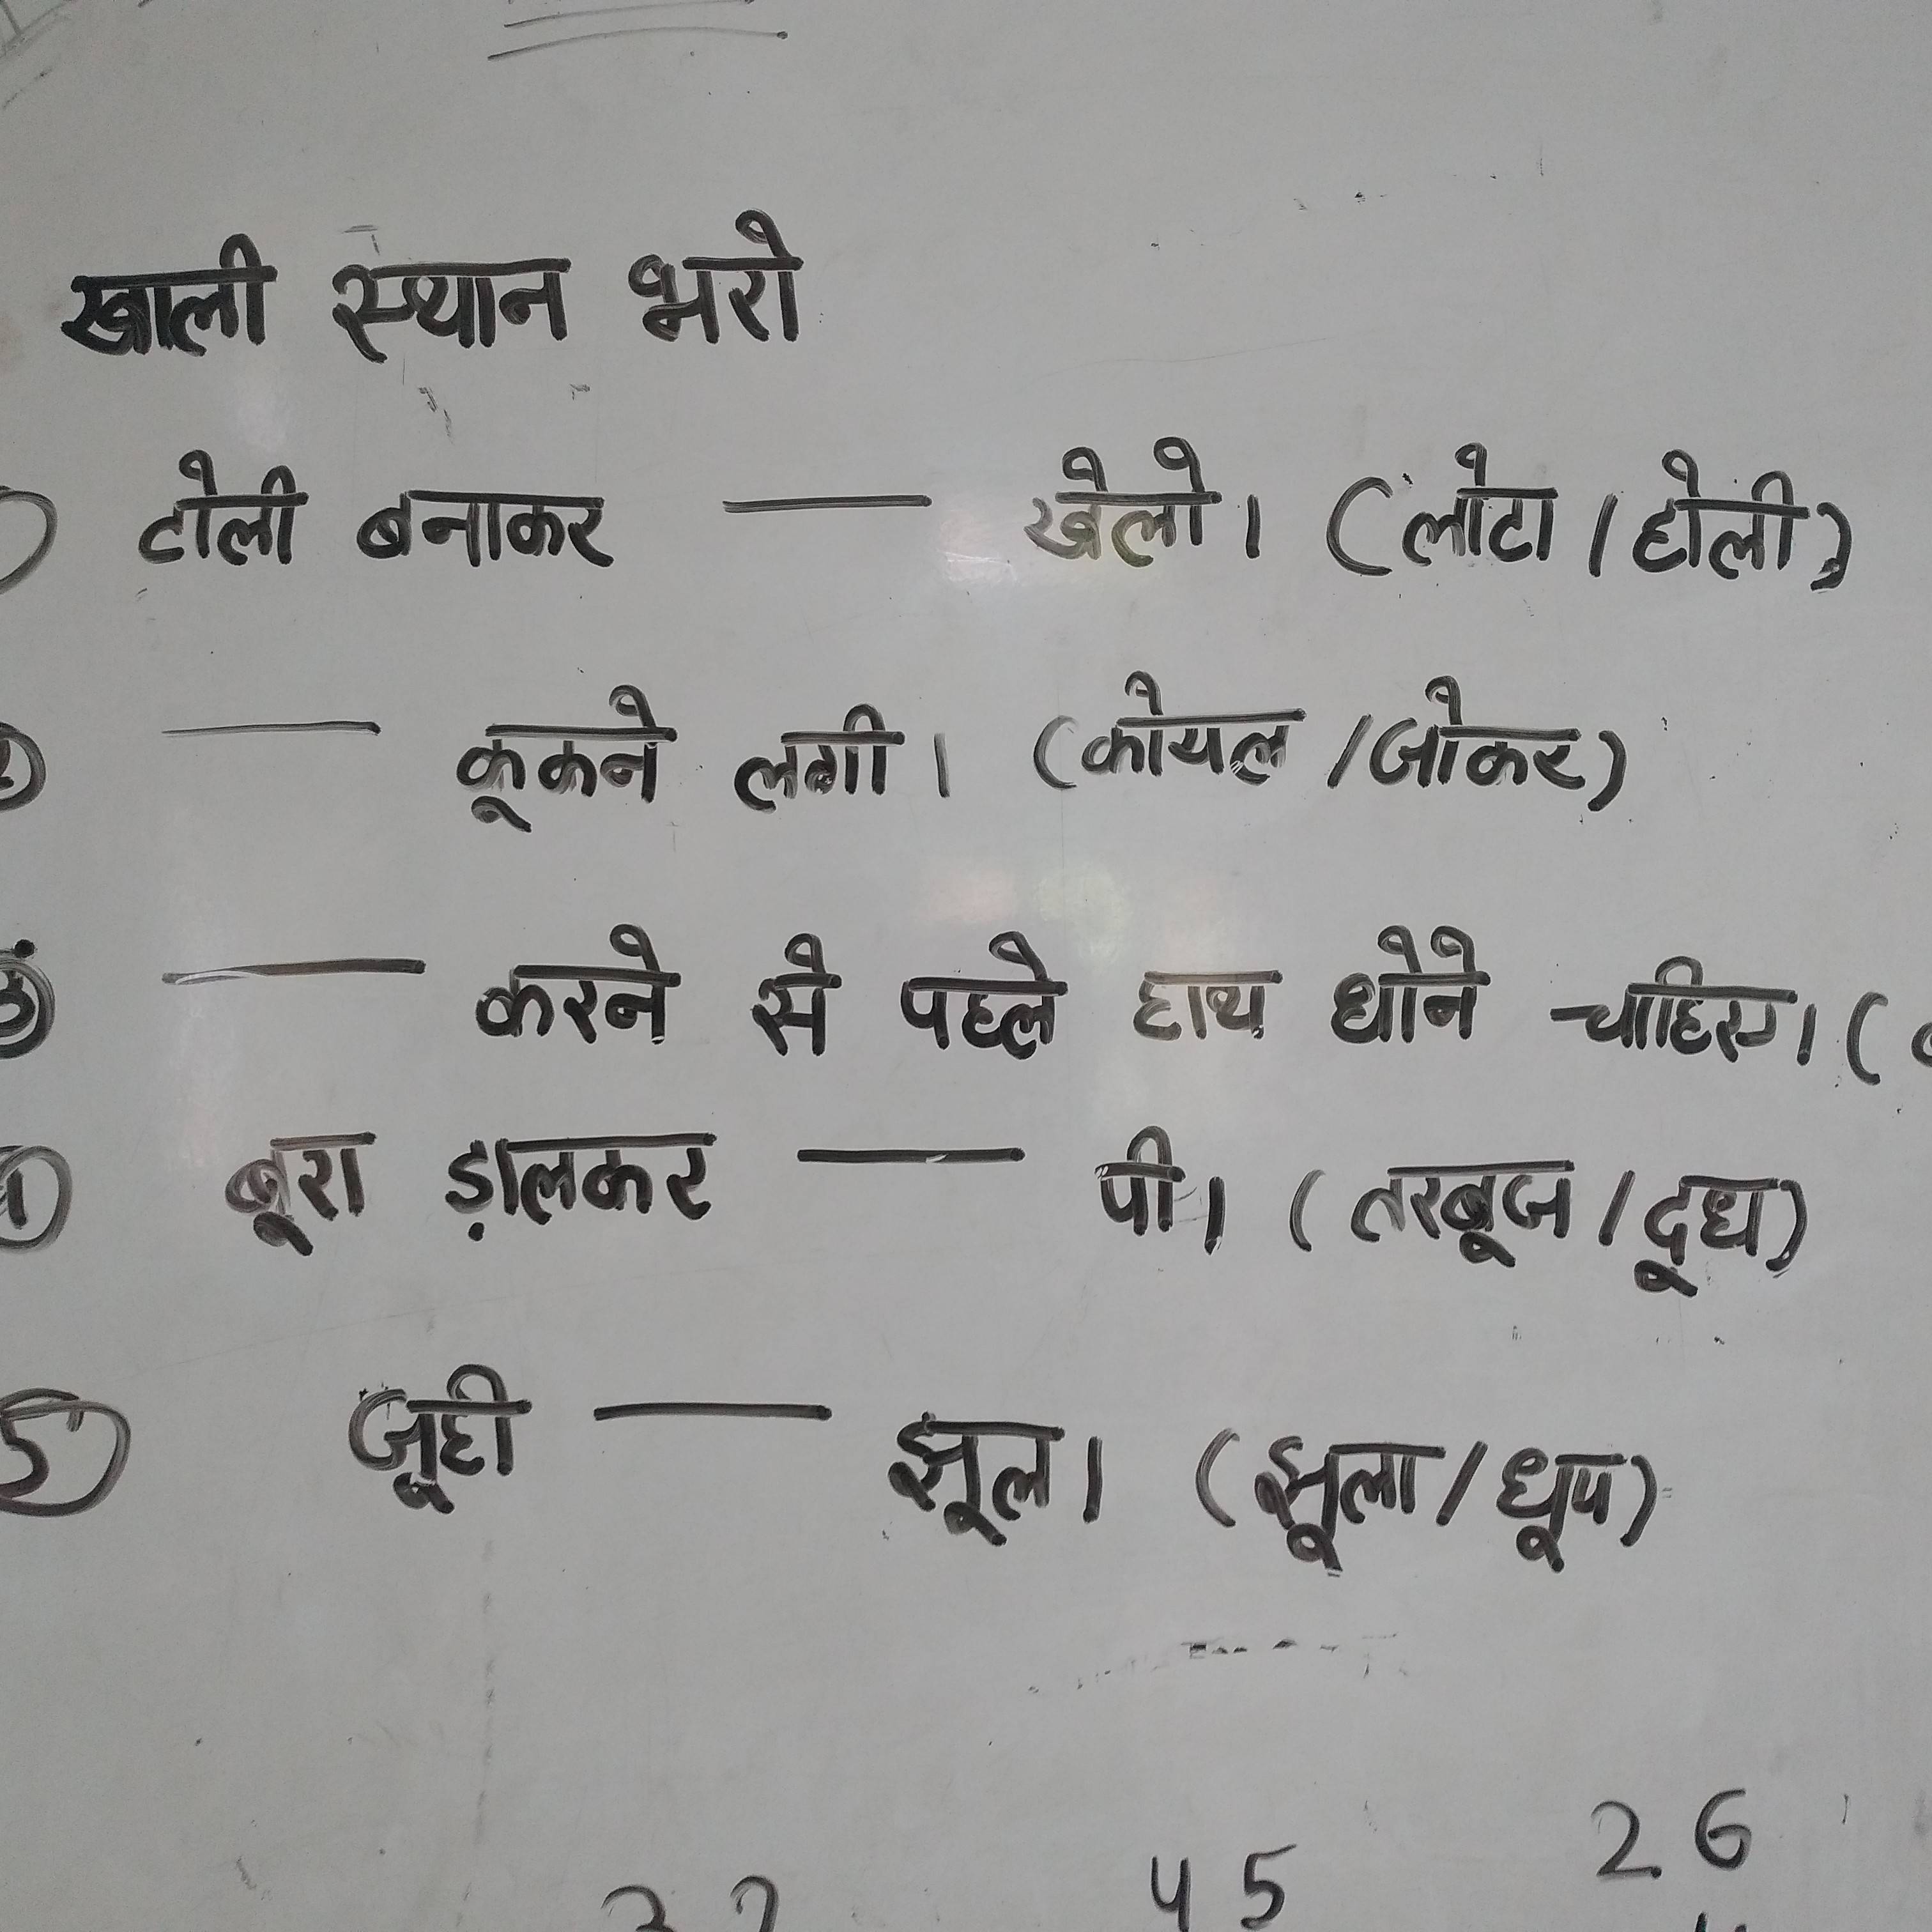 खाली स्थान भरो
टोली बनाकर — खेलो। (लोटा / होली)
② — कूकने लगी। (कोयल / जोकर)
— करने से पहले हाथ धोने चाहिए। (
बूरा ड़ालकर — पी। (तरबूज / दूध)
5 जूही — झूल। (झूला / धूप)
26
45